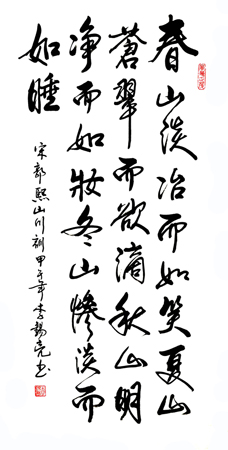 春山淡冶而如笑夏山
蒼翠而欲滴秋山明
净而如妝冬山慘淡而
如睡
宋郭熙山川訓甲午年李亮书